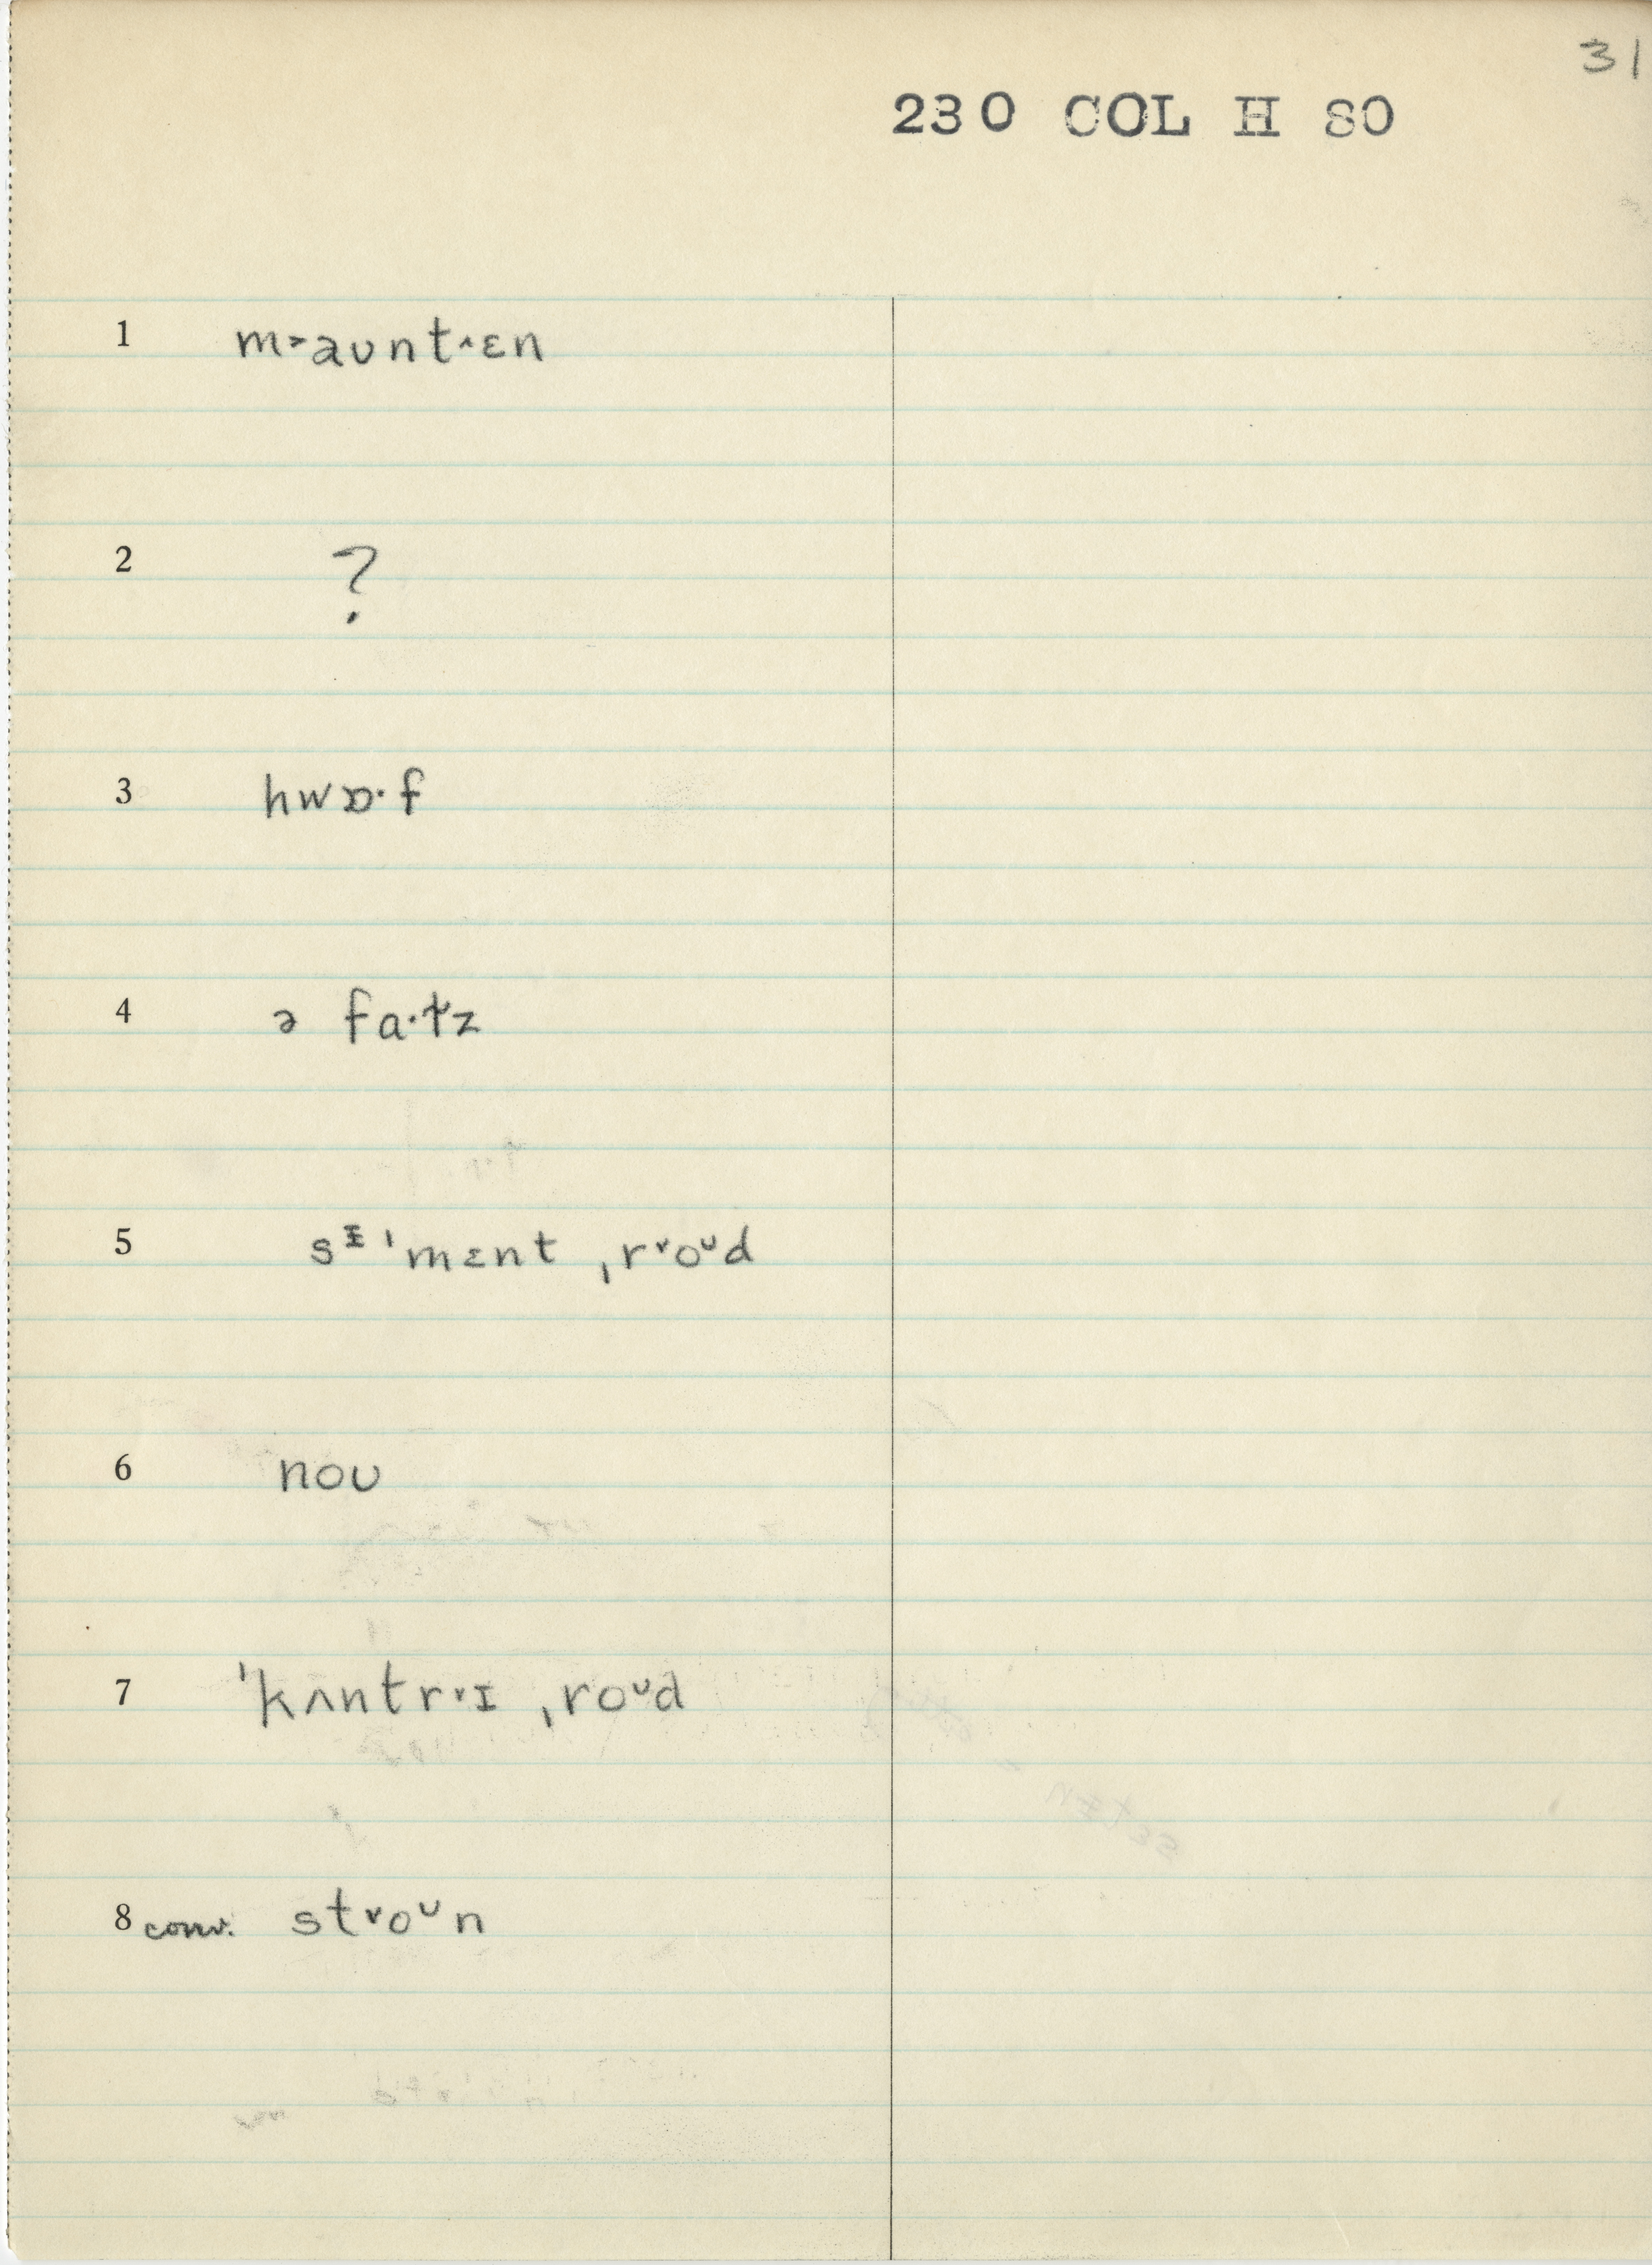 31
230 COL H 80
1 m˃aʊnt˄ɛn
2 ?
3 hwɒ·f
4 ə fa·t̬z
5 sᵻˈmɛnt ˌr˅oᶷd
6 noʊ
7 ˈkʌntr˅ɪ ˌroᶷd
8 conv. st˅oᶷn